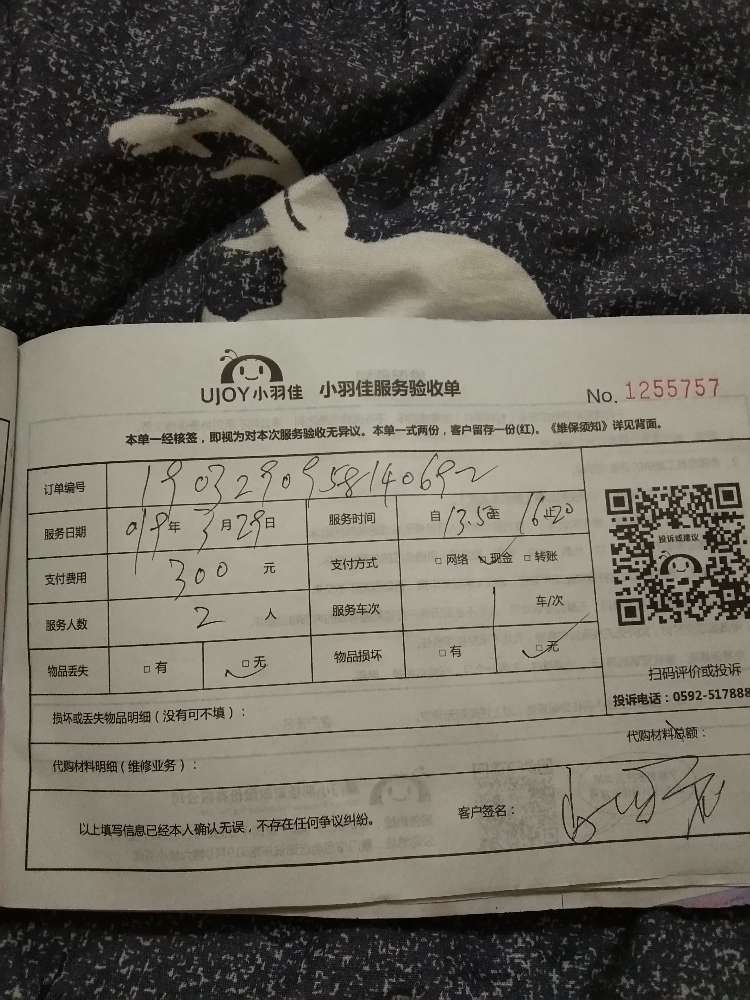 UJOY小羽佳 小羽佳服务验收单 No. 1255757
本单一经核签，即视为对本次服务验收无异议。本单一式两份，客户留存一份(红)。《维保须知》详见背面。
订单编号 1903290958140692
服务日期 019年3月29日 服务时间 自13.5至16止20
投诉或建议
支付费用 300元 支付方式 □网络 □现金 □转账
服务人数 2人 服务车次 1车/次
物品丢失 □有 □无 物品损坏 □有 □无
扫码评价或投诉
投诉电话：0592-517888
损坏或丢失物品明细（没有可不填）：
代购材料明细（维修业务）： 代购材料总额：
以上填写信息已经本人确认无误，不存在任何争议纠纷。 客户签名：